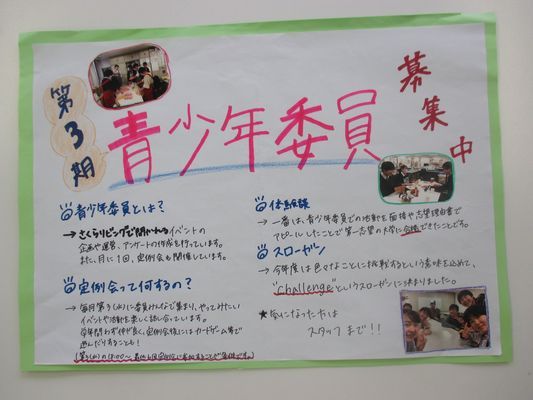 第3期
青少年委員
募集中
青少年委員とは?
→さくらリビングで開かれるイベントの
企画や運営、アンケートの作成を行っています。
また、月に1回、定例会も開催しています。
定例会って何するの?
→毎月第3(水)に委員みんなで集まり、やってみたい
イベントや活動を楽しく話し合っています。
学年問わず仲が良く、定例会後にはカードゲーム等で
遊んだりすることも!
体験談
→一番は、青少年委員での活動を面接や志望理由書で
アピールしたことで第一志望の大学に合格できたことです。
スローガン
→今年度は色々なことに挑戦するという意味を込めて、
"challenge"というスローガンに決まりました。
★気になった方は
スタッフまで!!